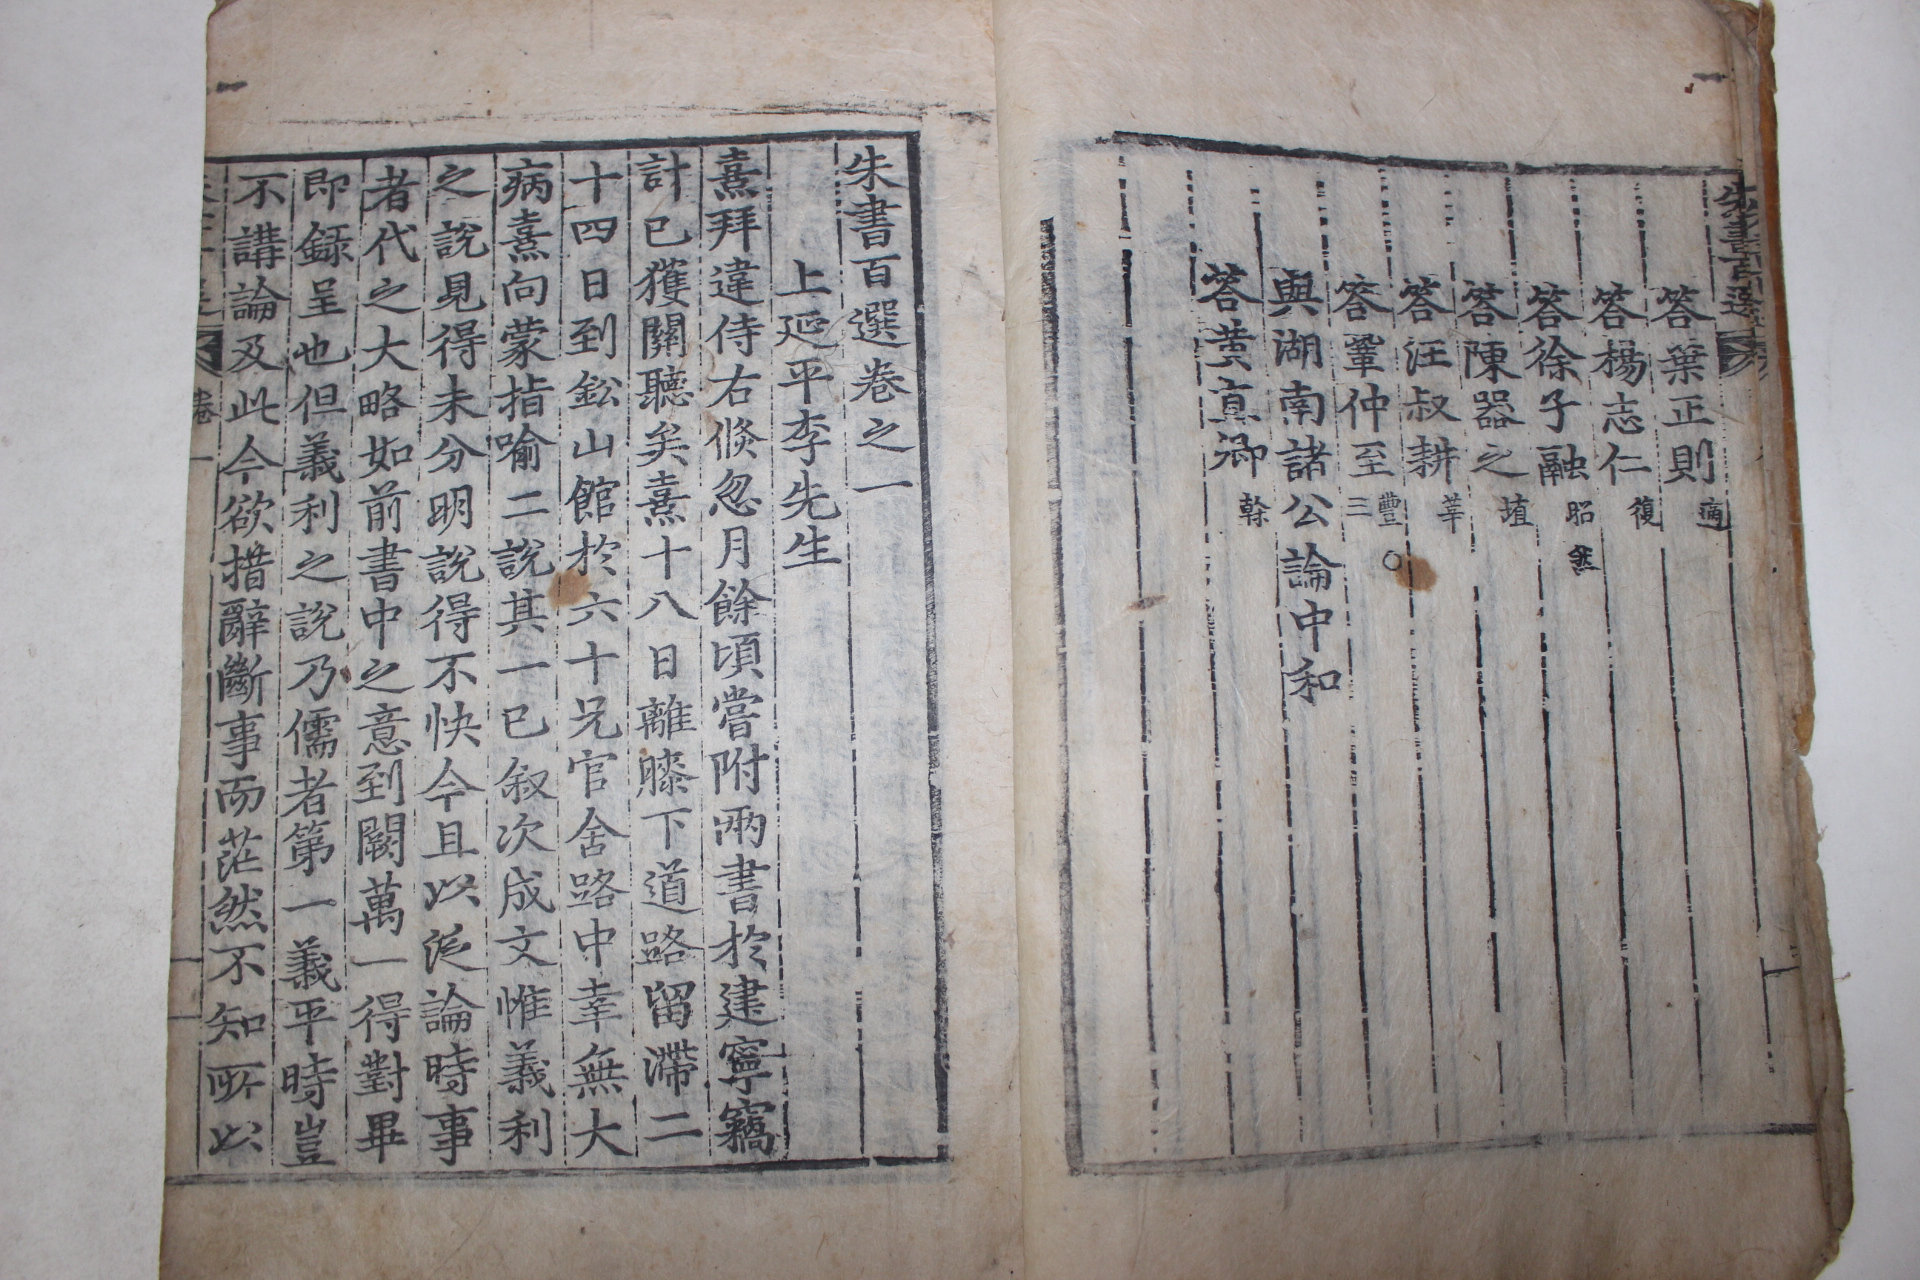 朱書百選
答葉正則適
答楊志仁復
答徐子融昭然
答陳器之埴
答汪叔耕莘
答鞏仲至豐○三
與湖南諸公論中和
答黃直卿榦
朱書百選卷之一
上延平李先生
熹拜違侍右倐忽月餘頃嘗附兩書於建寧竊
計已獲關聽矣熹十八日離膝下道路留滯二
十四日到鈆山館於六十兄官舍路中幸無大
病熹向蒙指喻二說其一已叙次成文惟義利
之說見得未分明說得不快今且以泛論時事
者代之大略如前書中之意到闕萬一得對畢
即録呈也但義利之說乃儒者第一義平時豈
不講論及此今欲措辭斷事而茫然不知所以
卷一